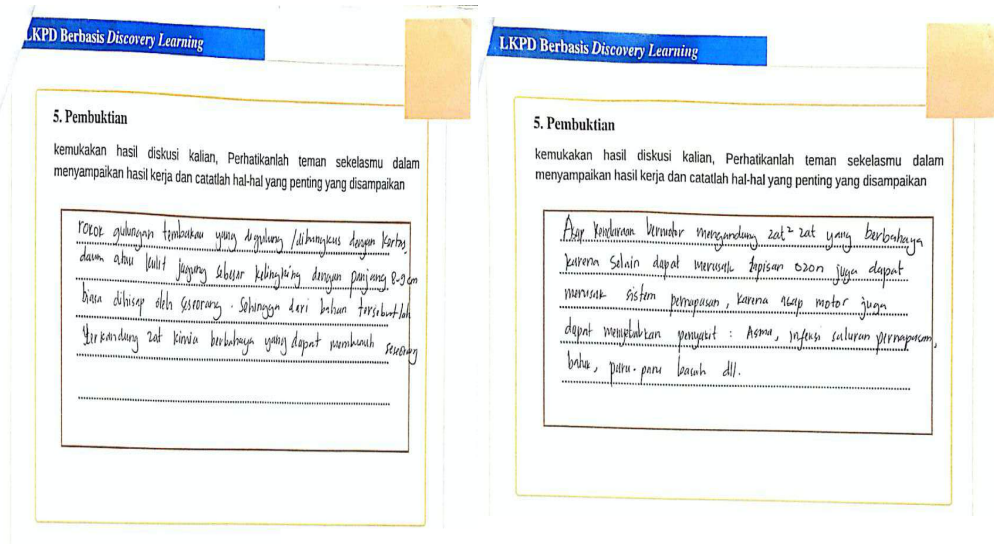 LKPD Berbasis Discovery Learning
5. Pembuktian
kemukakan hasil diskusi kalian, Perhatikanlah teman sekelasmu dalam
menyampaikan hasil kerja dan catatlah hal-hal yang penting yang disampaikan
rokok gulungan tembakau yang digulung / dibungkus dengan kertas,
daun atau kulit jagung sebesar kelingking dengan panjang 8-9 cm
biasa dihisap oleh seseorang. Sehingga dari bahan tersebutlah
terkandung zat kimia berbahaya yang dapat membunuh seseorang
LKPD Berbasis Discovery Learning
5. Pembuktian
kemukakan hasil diskusi kalian, Perhatikanlah teman sekelasmu dalam
menyampaikan hasil kerja dan catatlah hal-hal yang penting yang disampaikan
Asap kendaraan bermotor mengandung zat² zat yang berbahaya
karena selain dapat merusak lapisan ozon juga dapat
merusak sistem pernapasan, karena asap motor juga
dapat menyebabkan penyakit : Asma, infeksi saluran pernapasan,
batuk, paru-paru basah dll.